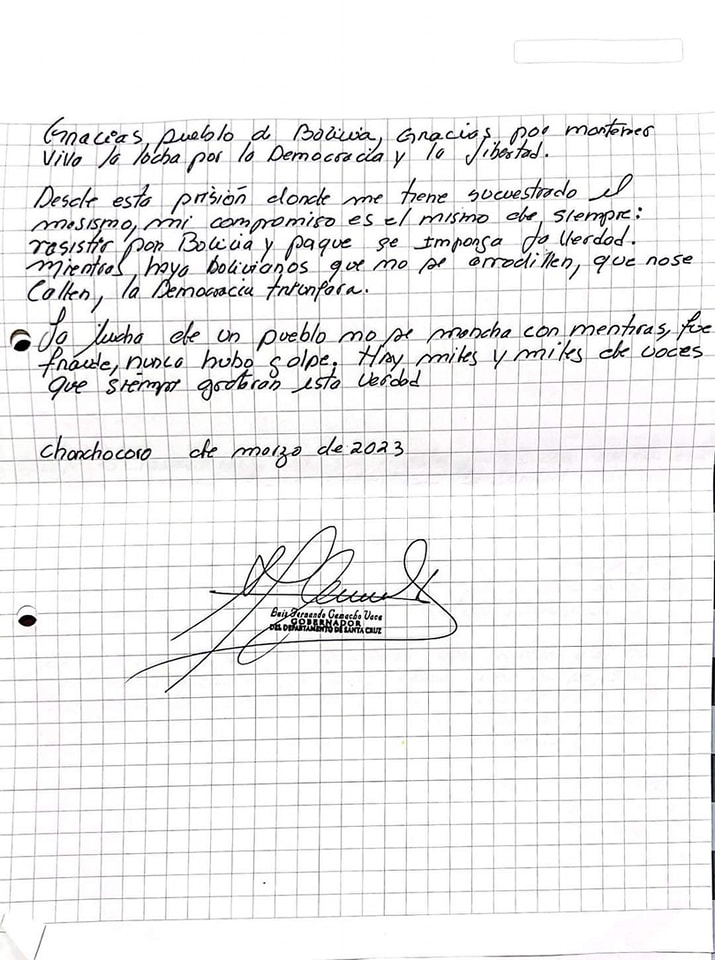 Gracias pueblo de Bolivia, Gracias por mantener
viva la lucha por la Democracia y la libertad.
Desde esta prisión donde me tiene secuestrado el
masismo, mi compromiso es el mismo de siempre:
resistir por Bolivia y paque se imponga la Verdad.
Mientras haya bolivianos que no se arrodillen, que nose
Callen, la Democracia triunfara.
La lucha de un pueblo no se mancha con mentiras, fue
fraude, nunca hubo golpe. Hay miles y miles de voces
que siempre gritarán esta Verdad
Chonchocoro de marzo de 2023
Luis Fernando Camacho Vaca
GOBERNADOR
DEL DEPARTAMENTO DE SANTA CRUZ